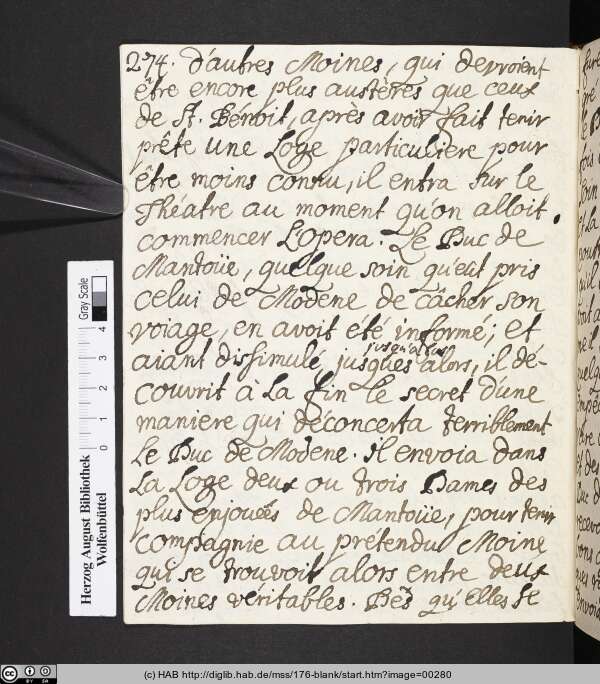 274. d'autres Moines, qui devroient
être encore plus austères que ceux
de St. Bénoit, après avoir fait tenir
prête une Loge particuliere pour
être moins connu, il entra sur le
Théatre au moment qu'on alloit
commencer L'opera. Le Duc de
Mantoüe, quelque soin qu'eut pris
celui de Modene de câcher son
voiage, en avoit eté informé; et
jusqu'alors
aiant dissimulé, jusques alors, il dé-
couvrit à La fin le secret d'une
maniere qui déconcerta terriblement
Le Duc de Modene. Il envoia dans
La Loge deux ou trois Dames des
plus enjouées de Mantoüe, pour tenir
compagnie au pretendu Moine
qui se trouvoit alors entre deux
Moines véritables. Dès qu'elles se
Gray Scale
0 1 2 3 4
Herzog August Bibliothek
Wolfenbüttel
(c) HAB http://diglib.hab.de/mss/176-blank/start.htm?image=00280